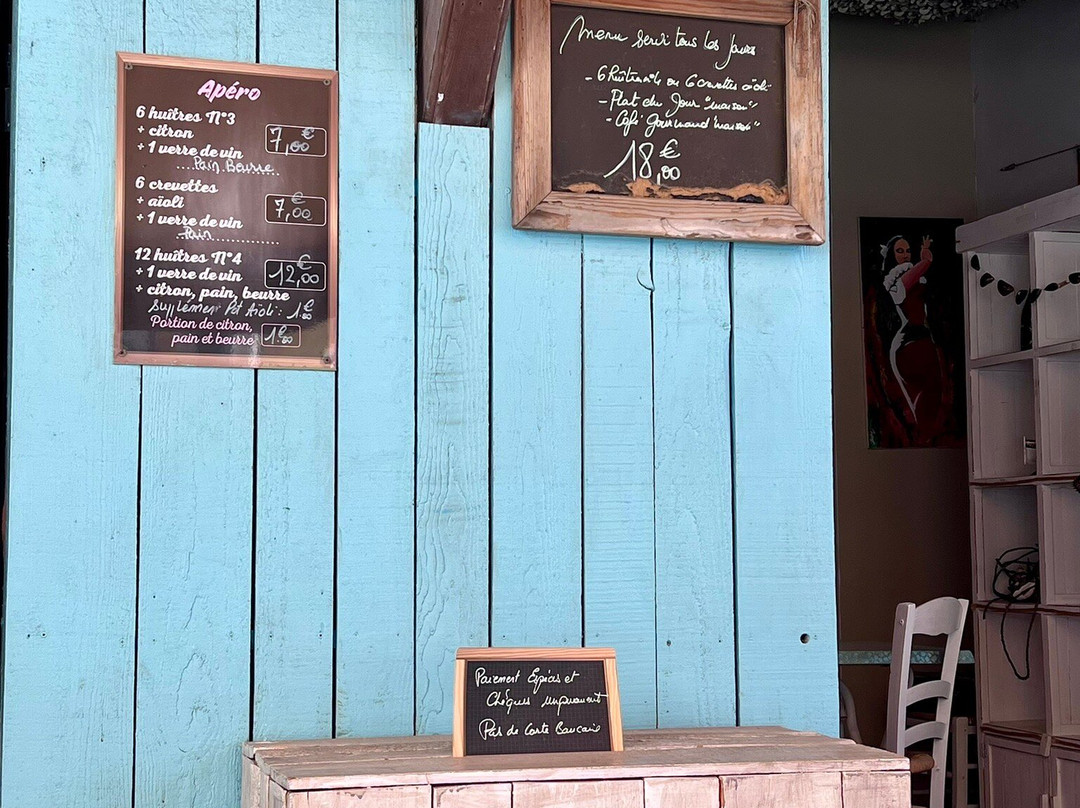 Apéro
6 huîtres N°3
+ citron
+ 1 verre de vin
7,00 €
Pain Beurre
6 crevettes
+ aïoli
+ 1 verre de vin
7,00 €
Pain
12 huîtres N°4
+ 1 verre de vin
+ citron, pain, beurre
12,00 €
Suplément Pot Aïoli : 1.€00
Portion de citron,
pain et beurre
1.€00
Menu Servi tous les Jours
- 6 huîtres n°4 ou 6 crevettes aïoli
- Plat du Jour "maison"
- Café gourmand "maison"
18,00 €
Paiement Espèces et
Chèques uniquement
Pas de Carte Bancaire